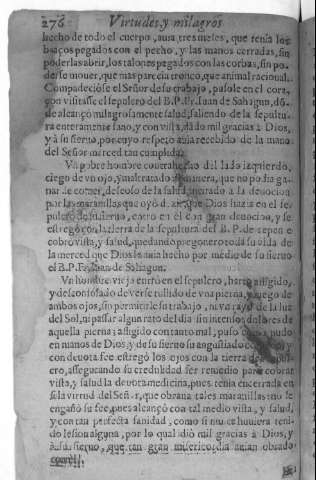 276 Virtudes, y milagros
hecho de todo el cuerpo, auia tres meses, que tenia los
braços pegados con el pecho, y las manos cerradas, sin
poderlas abrir, los talones pegados con las corbas, sin po-
derse mouer, que mas parecia tronco, que animal racional.
Compadeciòse el Señor de su trabajo, pusole en el cora-
çon visitasse el sepulcro del B.P. Fr. Iuan de Sahagun, dō-
de alcançò milagrosamente salud, saliendo de la sepultu-
ra enteramente sano, y con vista, dādo mil gracias à Dios,
y à su sieruo, por cuyo respeto auia recebido de la mano
del Señor merced tan cumplida.
Vn pobre hombre contrahecho del lado izquierdo,
ciego de vn ojo, y maltratado de manera, que no podia ga-
nar de comer, deseoso de la salud, incitado a la deuocion
por las marauillas que oyò dezir, que Dios hazia en el se-
pulcro de su sieruo, entrò en èl con gran deuocion, y se
estregò con la tierra de la sepultura del B.P. de repente
cobrò vista, y salud, quedando pregonero toda su vida de
la merced que Dios le auia hecho por medio de su sieruo
el B.P. Fr. Iuan de Sahagun.
Vn hombre viejo entrò en el sepulcro, harto afligido,
y desconfiado de verse tullido de vna pierna, y ciego de
ambos ojos, sin permitirle su trabajo, ni vn rayo de la luz
del Sol, ni passar algun rato del dia sin intensos dolores de
aquella pierna; afligido con tanto mal, puso como pudo
en manos de Dios, y de su sieruo su angustiado coraçon, y
con deuota fee estregò los ojos con la tierra del sepul-
cro, assegurando su credulidad ser remedio para cobrar
vista, y salud la deuota medicina, pues tenia encerrada en
si la virtud del Señor, que obraua tales marauillas: no le
engañò su fee, pues alcançò con tal medio vista, y salud,
y con tan perfecta sanidad, como si nunca huuiera teni-
do lesion alguna, por lo qual diò mil gracias à Dios, y
à su sieruo, que tan gran misericordia auian obrado
con èl.